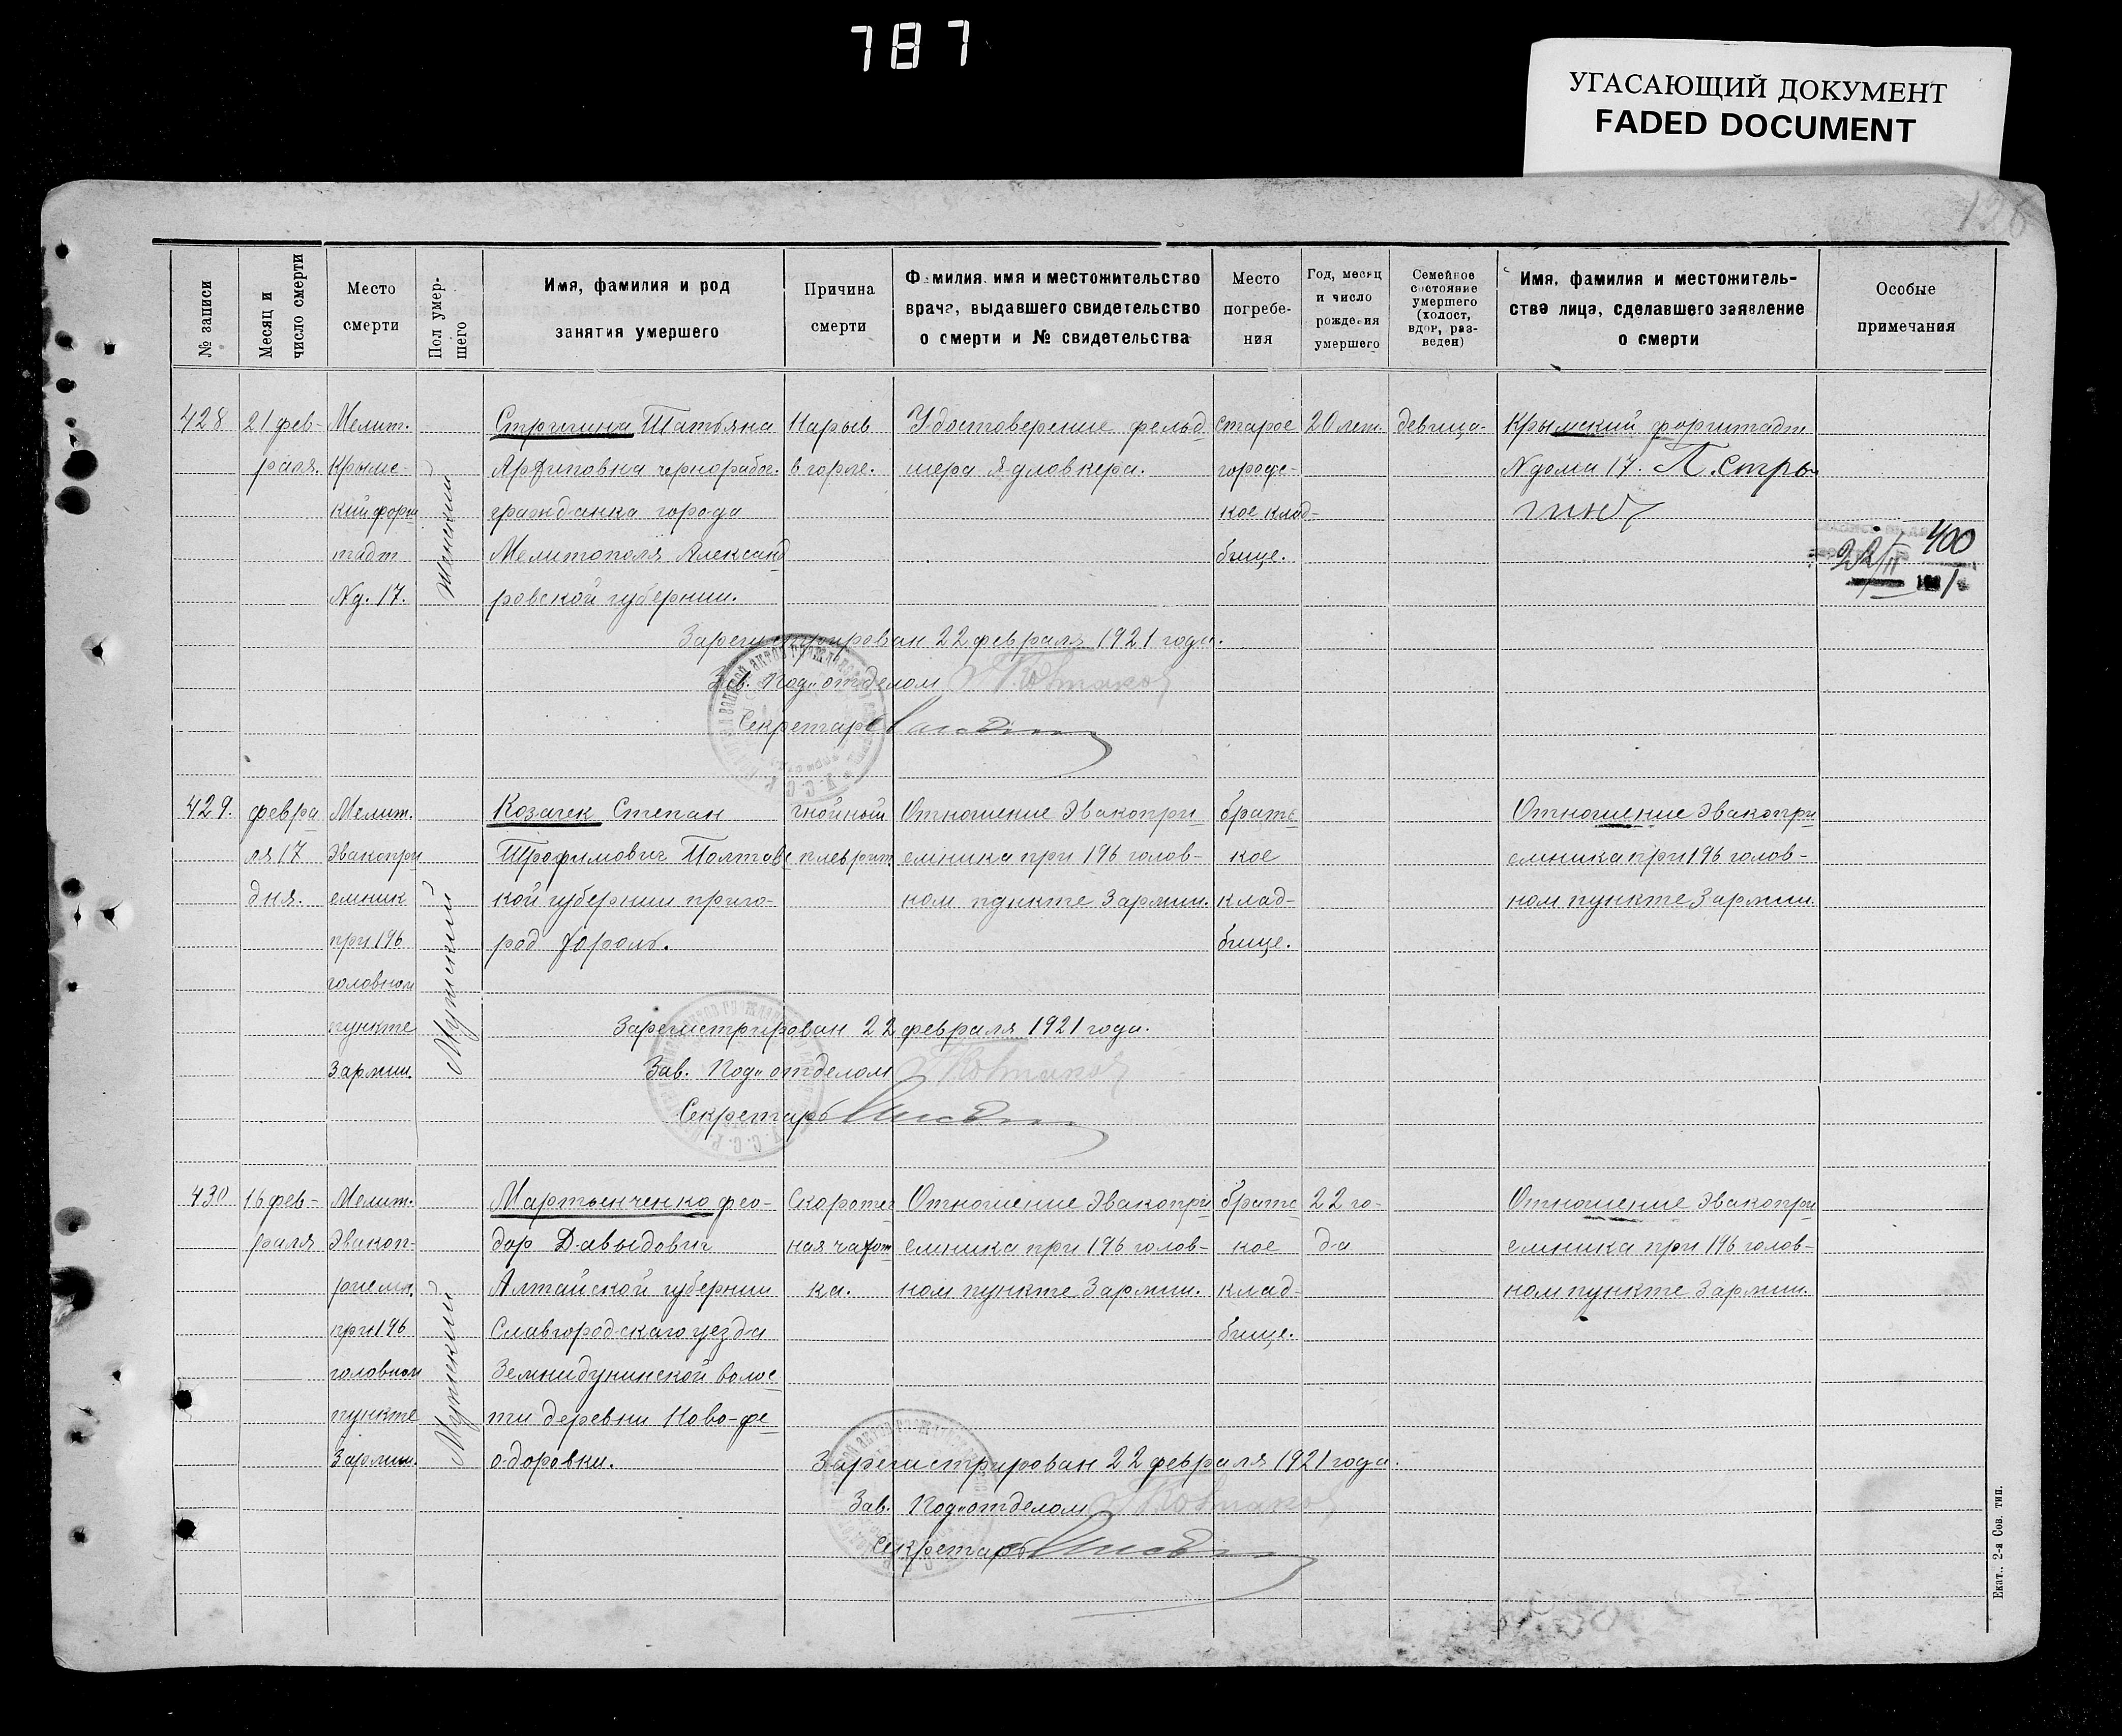 787
УГАСАЮЩИЙ ДОКУМЕНТ
FADED DOCUMENT
126
№ записи
Месяц и число смерти
Место смерти
Пол умер-шего
Имя, фамилия и род занятия умершего
Причина смерти
Фамилия, имя и местожительство врача, выдавшего свидетельство о смерти и № свидетельства
Место погребе-ния
Год, месяц и число рождения умершего
Семейное состояние умершего (холост, вдов, раз-веден)
Имя, фамилия и местожитель-ства лица, сделавшего заявление о смерти
Особые примечания
428
21 фев-
раля.
Мелит.
Крымс-
кий форш
тадт
Nд. 17.
Женский
Стригина Татьяна
чернорабоч.
гражданка города
Мелитополя Александ
ровской губернии.
Нарыв
в горле.
Удостоверение фельд
шера Ядловкера.
Старое
городс-
кое клад-
бище.
20 лет
девица
Крымский форштадт
N дома 17. П. Стры
22/II 400
Зарегистрирован 22 февраля 1921 года.
Зав. Под"отделом
Секретарь
429.
февра
ля 17
дня.
Мелит.
Эвакопри
емник
при 196
головном
пункте
3 армии.
Мужский
Козачек Степан
Трофимович Полтавс
кой губернии приго-
род Хороль.
Гнойный
плеврит
Отношение Эвакопри
емника при 196 голов-
ном пункте 3 армии.
братс
кое
клад-
бище.
Отношение Эвакопри
емника при 196 голов-
ном пункте 3 армии.
Зарегистрирован 22 февраля 1921 года.
Зав. Под"отделом
Секретарь
430
16 фев-
раля
Мелит.
Эвакоп-
рием.
при 196
головном
пункте
3 армии.
Мужский
Мартынченко фео-
дор Давыдович
Алтайской губернии
Славгородскаго уезда
волос
ти деревни Ново-фе
одоровки.
Скоротеч
ная чахот
ка.
Отношение Эвакопри
емника при 196 голов-
ном пункте 3 армии.
братс
кое
клад-
бище.
22 го-
да
Отношение Эвакопри
емника при 196 голов-
ном пункте 3 армии.
Зарегистрирован 22 февраля 1921 года.
Зав. Под"отделом
Секретарь
Екат., 2-а Сов. тип.